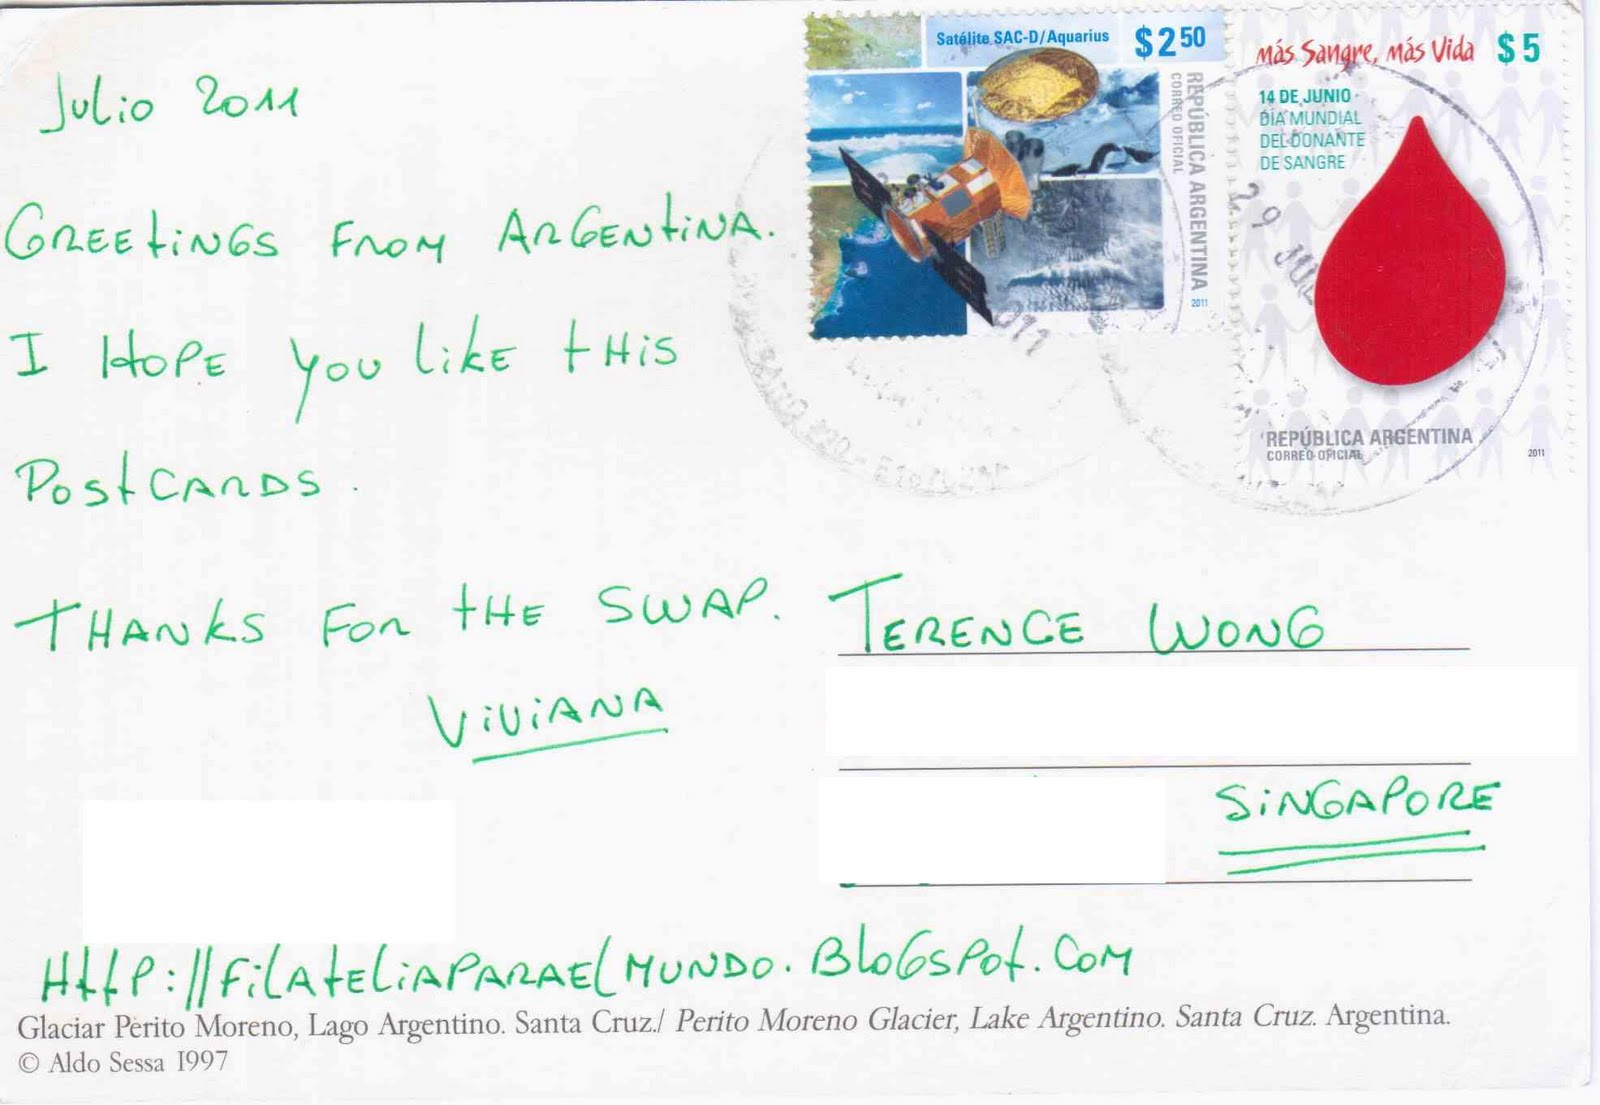 Julio 2011
GREETINGS FROM ARGENTINA.
I HOPE YOU LIKE THIS
POSTCARDS.
THANKS FOR THE SWAP.
VIVIANA
Satélite SAC-D/Aquarius $2 50
REPÚBLICA ARGENTINA
CORREO OFICIAL
2011
más Sangre, más Vida $5
14 DE JUNIO
DÍA MUNDIAL
DEL DONANTE
DE SANGRE
REPÚBLICA ARGENTINA
CORREO OFICIAL 2011
29 JUL
TERENCE WONG
SINGAPORE
HttP://FILATELIAPARAELMUNDO.BLOGSPOT.COM
Glaciar Perito Moreno, Lago Argentino. Santa Cruz./ Perito Moreno Glacier, Lake Argentino. Santa Cruz. Argentina.
© Aldo Sessa 1997